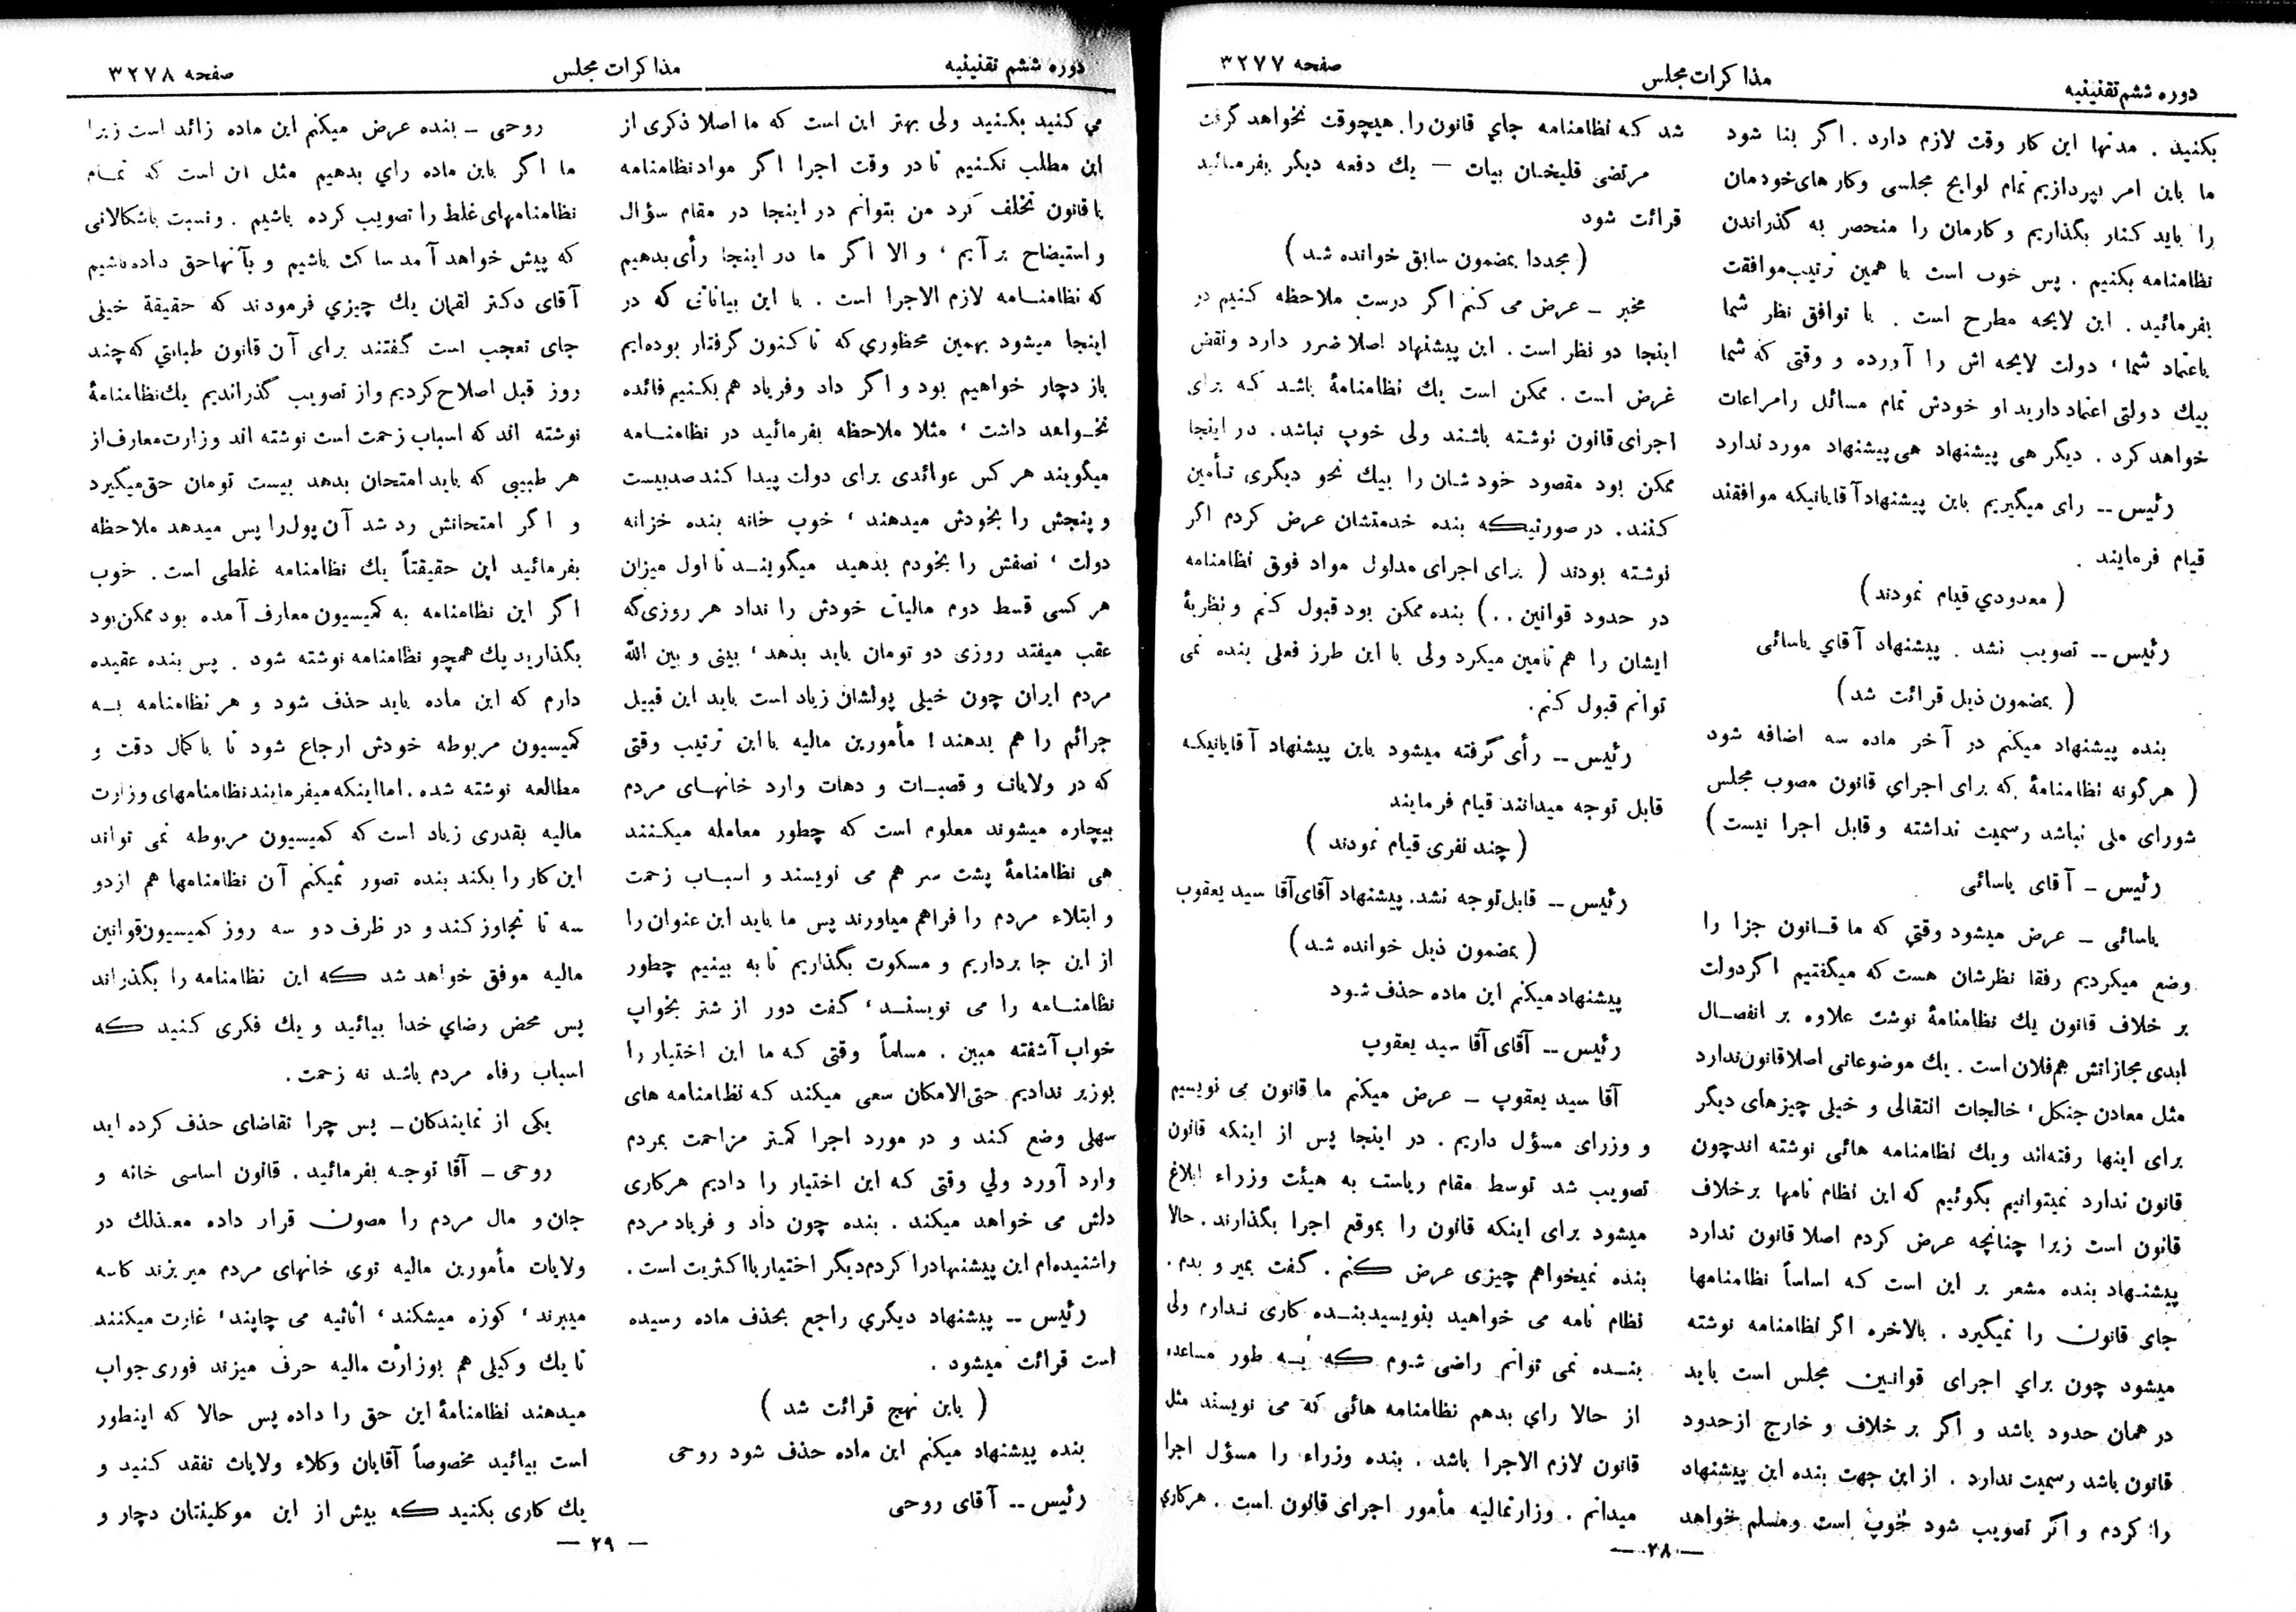 دوره ششم تقنینیه
مذاکرات مجلس
صفحه ۳۲۷۷
بکنید . مدتها این کار وقت لازم دارد . اگر بنا شود
ما باین امر بپردازیم تمام لوایح مجلسی وکارهای خودمان
را باید کنار بگذاریم و کارمان را منحصر به گذراندن
نظامنامه بکنیم . پس خوب است با همین ترتیب موافقت
بفرمائید . این لایحه مطرح است . با توافق نظر شما
باعتماد شما ، دولت لایحه اش را آورده و وقتی که شما
بیك دولتی اعتماد دارید او خودش تمام مسائل را مراعات
خواهد کرد . دیگر هی پیشنهاد هی پیشنهاد مورد ندارد
رئیس -- رای میگیریم باین پیشنهاد آقایانیکه موافقند
قیام فرمایند .
( معدودي قیام نمودند )
رئیس -- تصویب نشد . پیشنهاد آقاي یاسائی
( بمضمون ذیل قرائت شد )
بنده پیشنهاد میکنم در آخر ماده سه اضافه شود
( هرگونه نظامنامهٔ که برای اجراي قانون مصوب مجلس
شورای ملی نباشد رسمیت نداشته و قابل اجرا نیست )
رئیس – آقای یاسائی
یاسائی – عرض میشود وقتي که ما قانون جزا را
وضع میکردیم رفقا نظرشان هست که میگفتیم اگر دولت
بر خلاف قانون یك نظامنامهٔ نوشت علاوه بر انفصال
ابدی مجازاتش هم فلان است . یك موضوعاتی اصلا قانون ندارد
مثل معادن جنگل ، خالجات انتقالی و خیلی چیزهای دیگر
برای اینها رفته‌اند ویك نظامنامه هائی نوشته اند چون
قانون ندارد نمیتوانیم بگوئیم که این نظام نامها بر خلاف
قانون است زیرا چنانچه عرض کردم اصلا قانون ندارد
پیشنهاد بنده مشعر بر این است که اساساً نظامنامها
جای قانون را نمیگیرد . بالاخره اگر نظامنامه نوشته
میشود چون براي اجرای قوانین مجلس است باید
در همان حدود باشد و اگر بر خلاف و خارج از حدود
قانون باشد رسمیت ندارد . از این جهت بنده این پیشنهاد
را کردم و اگر تصویب شود خوب است ومسلم خواهد
شد که نظامنامه جاي قانون را هیچوقت نخواهد گرفت
مرتضی قلیخان بیات — یك دفعه دیگر بفرمائید
قرائت شود
( مجددا بمضمون سابق خوانده شد )
مخبر – عرض می کنم اگر درست ملاحظه کنیم در
اینجا دو نظر است . این پیشنهاد اصلا ضرر دارد ونقض
غرض است . ممکن است یك نظامنامهٔ باشد که برای
اجرای قانون نوشته باشند ولی خوب نباشد . در اینجا
ممکن بود مقصود خودشان را بیك نحو دیگری تأمین
کنند . در صورتیکه بنده خدمتشان عرض کردم اگر
نوشته بودند ( برای اجرای مدلول مواد فوق نظامنامه
در حدود قوانین . . ) بنده ممکن بود قبول کنم و نظریهٔ
ایشان را هم تامین میکرد ولی با این طرز فعلی بنده نمی
توانم قبول کنم .
رئیس -- رأی گرفته میشود باین پیشنهاد آقایانیکه
قابل توجه میدانند قیام فرمایند
( چند نفری قیام نمودند )
رئیس -- قابل توجه نشد . پیشنهاد آقای آقا سید یعقوب
( بمضمون ذیل خوانده شد )
پیشنهاد میکنم این ماده حذف شود
رئیس -- آقای آقا سید یعقوب
آقا سید یعقوب – عرض میکنم ما قانون می نویسیم
و وزرای مسؤل داریم . در اینجا پس از اینکه قانون
تصویب شد توسط مقام ریاست به هیئت وزراء ابلاغ
میشود برای اینکه قانون را بموقع اجرا بگذارند . حالا
بنده نمیخواهم چیزی عرض کنم . گفت بمیر و بدم .
نظام نامه می خواهید بنویسید بنده کاری ندارم ولی
بنده نمی توانم راضی شوم که به طور مساعده
از حالا راي بدهم نظامنامه هائی که می نویسند مثل
قانون لازم الاجرا باشد . بنده وزراء را مسؤل اجرا
میدانم . وزارتمالیه مأمور اجرای قانون است . هرکاري
— ۲۸ —
دوره ششم تقنینیه
مذاکرات مجلس
صفحه ۳۲۷۸
مي کنید بکنید ولی بهتر این است که ما اصلا ذکری از
این مطلب نکنیم تا در وقت اجرا اگر مواد نظامنامه
با قانون تخلف کرد من بتوانم در اینجا در مقام سؤال
و استیضاح بر آیم ، و الا اگر ما در اینجا رأی بدهیم
که نظامنامه لازم الاجرا است . با این بیاناتی که در
اینجا میشود بهمین محظوري که تا کنون گرفتار بوده‌ایم
باز دچار خواهیم بود و اگر داد وفریاد هم بکنیم فائده
نخواهد داشت ، مثلا ملاحظه بفرمائید در نظامنامه
میگویند هر کس عوائدی برای دولت پیدا کند صد بیست
و پنجش را بخودش میدهند ، خوب خانه بنده خزانه
دولت ، نصفش را بخودم بدهید میگویند تا اول میزان
هر کسی قسط دوم مالیات خودش را نداد هر روزی که
عقب میفتد روزی دو تومان باید بدهد ، بینی و بین الله
مردم ایران چون خیلی پولشان زیاد است باید این قبیل
جرائم را هم بدهند ! مأمورین مالیه با این ترتیب وقتی
که در ولایات و قصبات و دهات وارد خانهای مردم
بیچاره میشوند معلوم است که چطور معامله میکنند
هی نظامنامهٔ پشت سر هم می نویسند و اسباب زحمت
و ابتلاء مردم را فراهم میاورند پس ما باید این عنوان را
از این جا برداریم و مسکوت بگذاریم تا به بینیم چطور
نظامنامه را می نویسند ، گفت دور از شتر بخواب
خواب آشفته مبین . مسلماً وقتی که ما این اختیار را
بوزیر ندادیم حتی‌الامکان سعی میکند که نظامنامه های
سهلی وضع کند و در مورد اجرا کمتر مزاحمت بمردم
وارد آورد ولي وقتی که این اختیار را دادیم هرکاری
دلش می خواهد میکند . بنده چون داد و فریاد مردم
را شنیده‌ام این پیشنهاد را کردم دیگر اختیار با اکثریت است .
رئیس -- پیشنهاد دیگري راجع بحذف ماده رسیده
است قرائت میشود .
( باین نهج قرائت شد )
بنده پیشنهاد میکنم این ماده حذف شود روحی
رئیس -- آقای روحی
روحی – بنده عرض میکنم این ماده زائد است زیرا
ما اگر باین ماده راي بدهیم مثل این است که تمام
نظامنامهای غلط را تصویب کرده باشیم . ونسبت باشکالاتی
که پیش خواهد آمد ساکت باشیم و بآنها حق داده باشیم
آقای دکتر لقمان یك چیزي فرمودند که حقیقة خیلی
جای تعجب است گفتند برای آن قانون طبابتي که چند
روز قبل اصلاح کردیم واز تصویب گذراندیم یك نظامنامهٔ
نوشته اند که اسباب زحمت است نوشته اند وزارت معارف از
هر طبیبی که باید امتحان بدهد بیست تومان حق میگیرد
و اگر امتحانش رد شد آن پول را پس میدهد ملاحظه
بفرمائید این حقیقتاً یك نظامنامه غلطی است . خوب
اگر این نظامنامه به کمیسیون معارف آمده بود ممکن بود
بگذارید یك همچو نظامنامه نوشته شود . پس بنده عقیده
دارم که این ماده باید حذف شود و هر نظامنامه به
کمیسیون مربوطه خودش ارجاع شود تا با کمال دقت و
مطالعه نوشته شده . اما اینکه میفرمایند نظامنامهای وزارت
مالیه بقدری زیاد است که کمیسیون مربوطه نمی تواند
این کار را بکند بنده تصور نمیکنم آن نظامنامها هم از دو
سه تا تجاوز کند و در ظرف دو سه روز کمیسیون قوانین
مالیه موفق خواهد شد که این نظامنامه را بگذراند
پس محض رضاي خدا بیائید و یك فکری کنید که
اسباب رفاه مردم باشد نه زحمت .
یکی از نمایندگان – پس چرا تقاضای حذف کرده اید
روحی – آقا توجه بفرمائید . قانون اساسی خانه و
جان و مال مردم را مصون قرار داده معذلك در
ولایات مأمورین مالیه توی خانهای مردم میریزند کاسه
میبرند ، کوزه میشکند ، اثاثیه می چاپند ، غارت میکنند
تا یك وکیلی هم بوزارت مالیه حرف میزند فوری جواب
میدهند نظامنامهٔ این حق را داده پس حالا که اینطور
است بیائید مخصوصاً آقایان وکلاء ولایات تفقد کنید و
یك کاری بکنید که بیش از این موکلینتان دچار و
— ۲۹ —